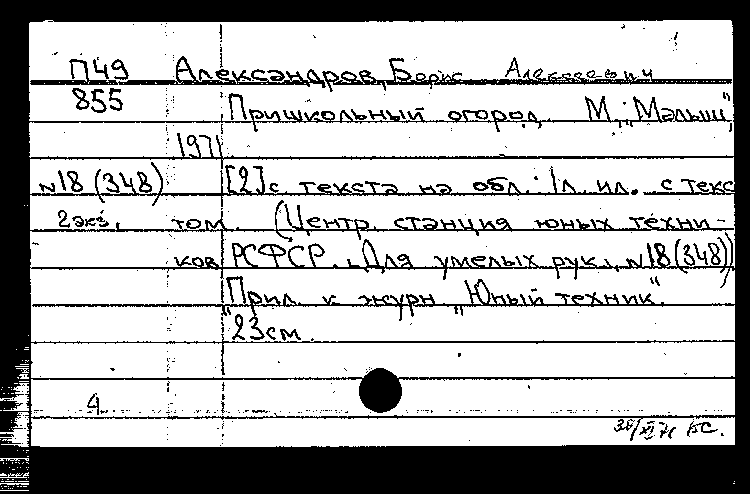 П49 Александров, Борис Алексеевич
855 Пришкольный огород. М., „Малыш",
1971
N18 (348) [2]с текста на обл. 1л. ил. с текс
2 экз. том. (Центр. станция юных техни-
ков РСФСР. „Для умелых рук", N18(348))
„Прил. к журн „Юный техник".
23см.
4